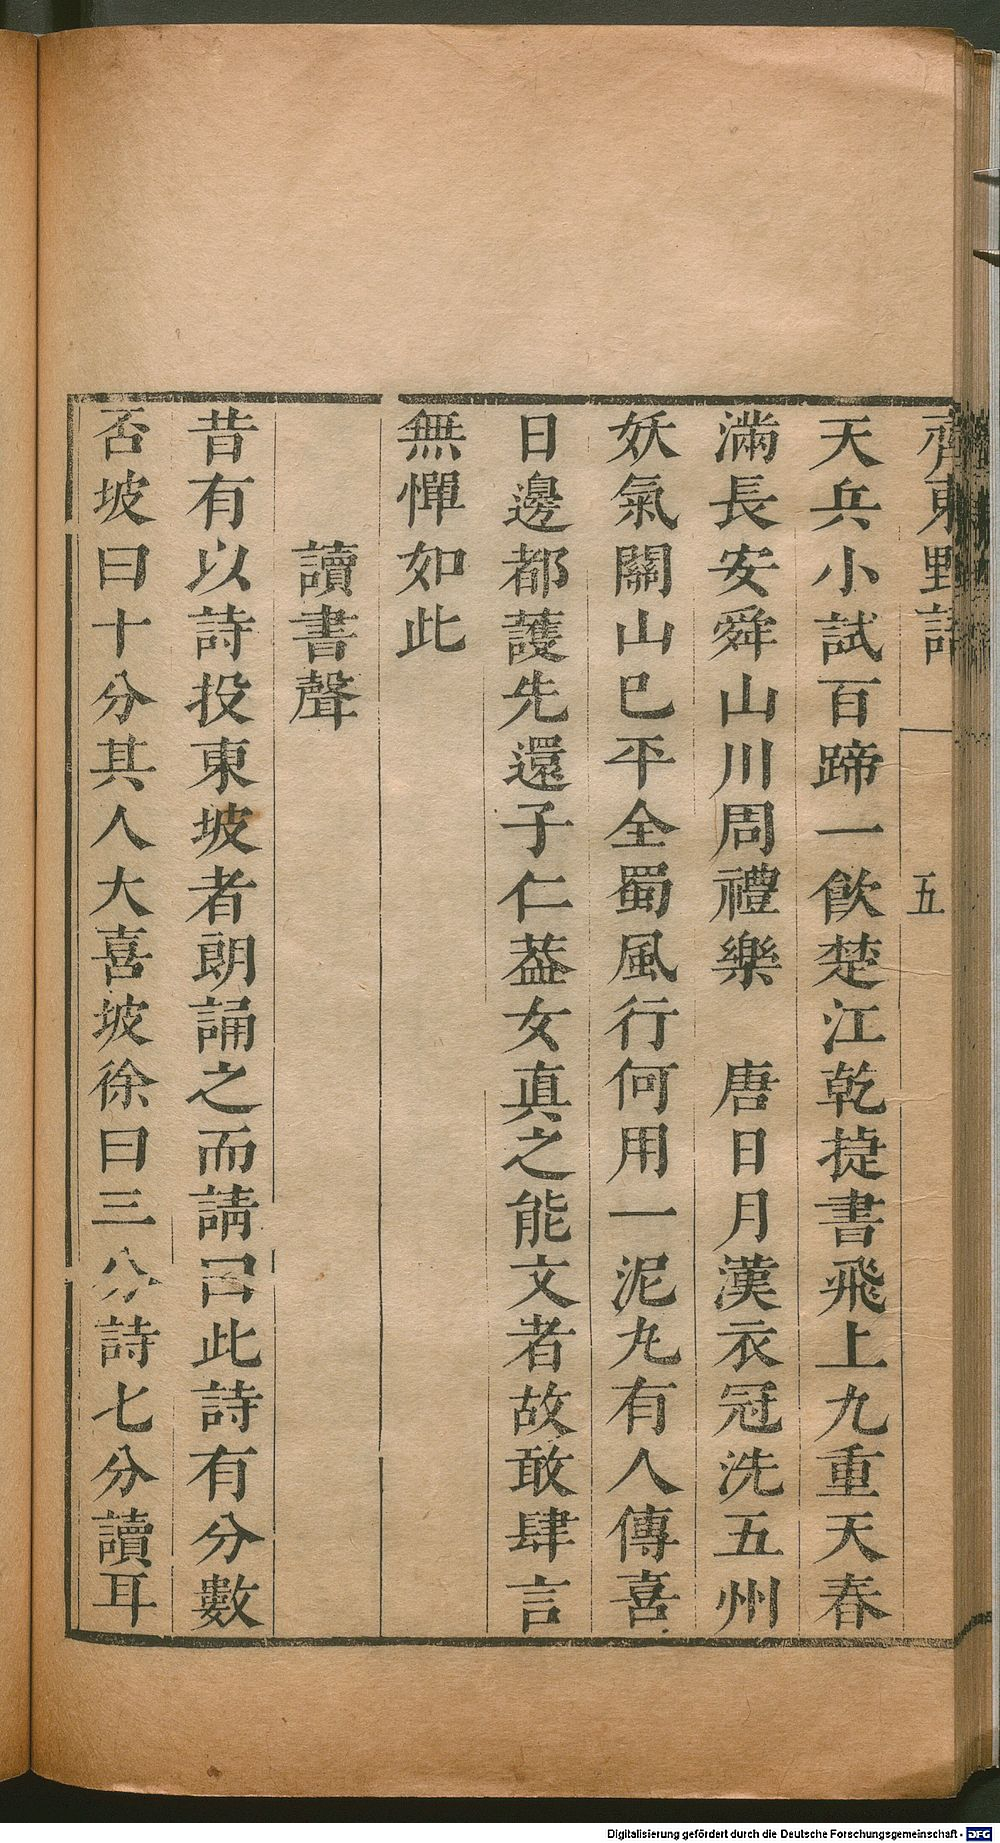 齊東野語
五
天兵小試百蹄一飮楚江乾捷書飛上九重天春
滿長安舜山川周禮樂　唐日月漢衣冠洗五州
妖氣關山已平全蜀風行何用一泥丸有人傳喜
日邊都護先還子仁葢女真之能文者故敢肆言
無憚如此
讀書聲
昔有以詩投東坡者朗誦之而請曰此詩有分數
否坡曰十分其人大喜坡徐曰三分詩七分讀耳
Digitalisierung gefördert durch die Deutsche Forschungsgemeinschaft - DFG